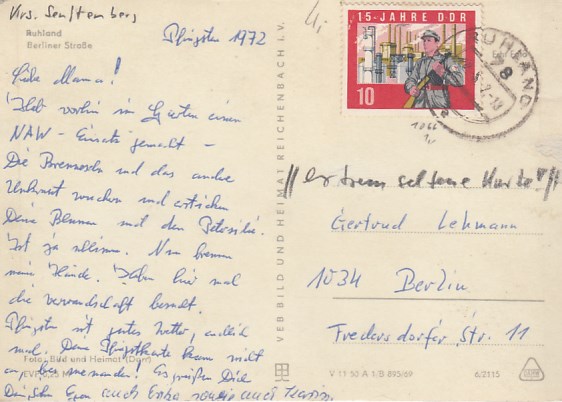 Krs. Senftenberg
Ruhland
Berliner Straße
Pfingsten 1972
Liebe Mama!
Hab vorhin im Garten einen
NAW - Einsatz gemacht -
Die Brennesseln und das andre
Unkraut wuchern und ersticken
Deine Blumen und den Petersilie.
Ist ja schlimm. Nun brennen
meine Hände. Haben hier mal
die Verwandschaft besucht.
Pfingsten ist gutes Wetter, endlich
mal. Deine Pfingstkarte kam nicht
an, bei niemanden! Es grüßen Dich
Foto: Bild und Heimat (Darr)
EVP 0,25 M
Dein Sohn Egon auch Erika sowie auch Karin
VEB BILD UND HEIMAT REICHENBACH i. V.
15 JAHRE DDR
10
RUHLAND
78
1066
//extrem seltene Karte!//
Gertrud Lehmann
1034 Berlin
Fredersdorfer Str. 11
V 11 50 A 1/B 895/69
6/2115